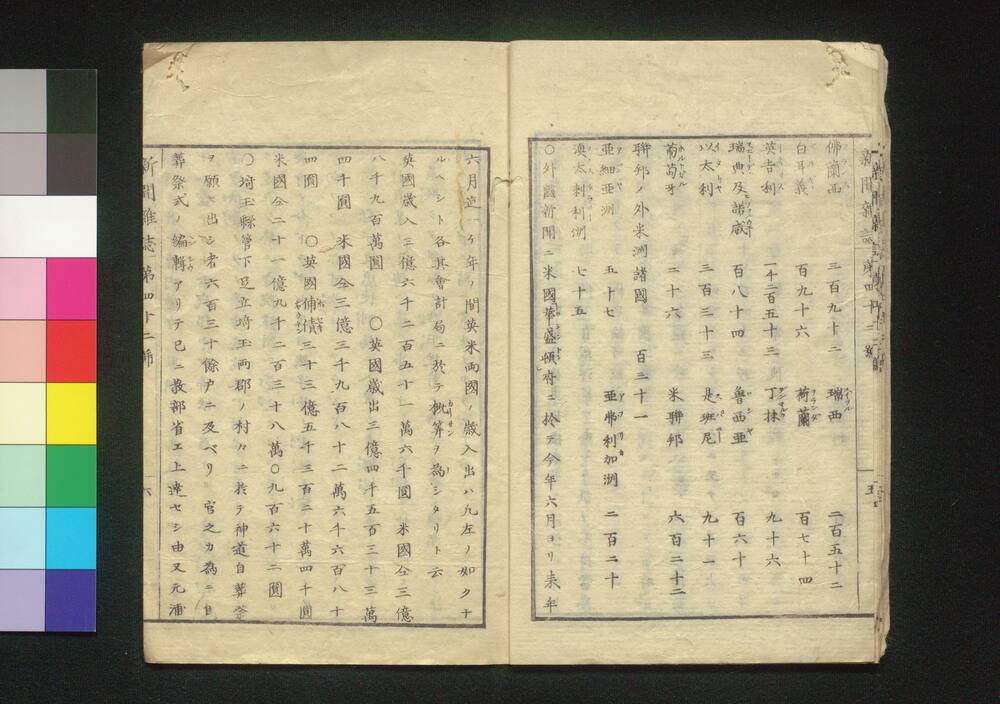 新聞雑誌 第四十二號 五
佛蘭西 三百九十二 瑞西 二百五十二
白耳義 百九十六 荷蘭 百七十四
英吉利 一千二百五十三 丁抹 九十六
瑞典及諾威 百八十四 魯西亜 百六十
以太利 三百三十三 是班尼 九十一
葡萄牙 二十六 米聯邦 六百二十二
聯邦ノ外米洲諸國 百三十一
亜細亜洲 五十七 亜弗利加洲 二百二十
澳太利利洲 七十五
○外國新聞ニ米國華盛頓府ニ於テ今年六月ヨリ來年
六月迄一ケ年ノ間英米両國ノ歳入出ハ凡左ノ如クナ
ルヘシト各其會計局ニ於テ概算ヲ為シタリト云
英國歳入三億六千二百五十一萬六千圓 米國仝三億
八千九百萬圓 ○英國歳出三億四千五百三十三萬
四千圓 米國仝三億三千九百八十二萬六千六百八十
四圓 ○英國債三十三億五千三百二十萬四千圓
米國仝二十一億九千二百三十八萬○九百六十二圓
○埼玉縣管下足立埼玉両郡ノ村々ニ於テ神道自葬祭
ヲ願ヒ出シ者六百三十餘户ニ及ベリ官之カ為ニ自
葬祭式ノ編輯アリテ已ニ教部省エ上達セシ由又元浦
新聞雜誌第四十二號 六